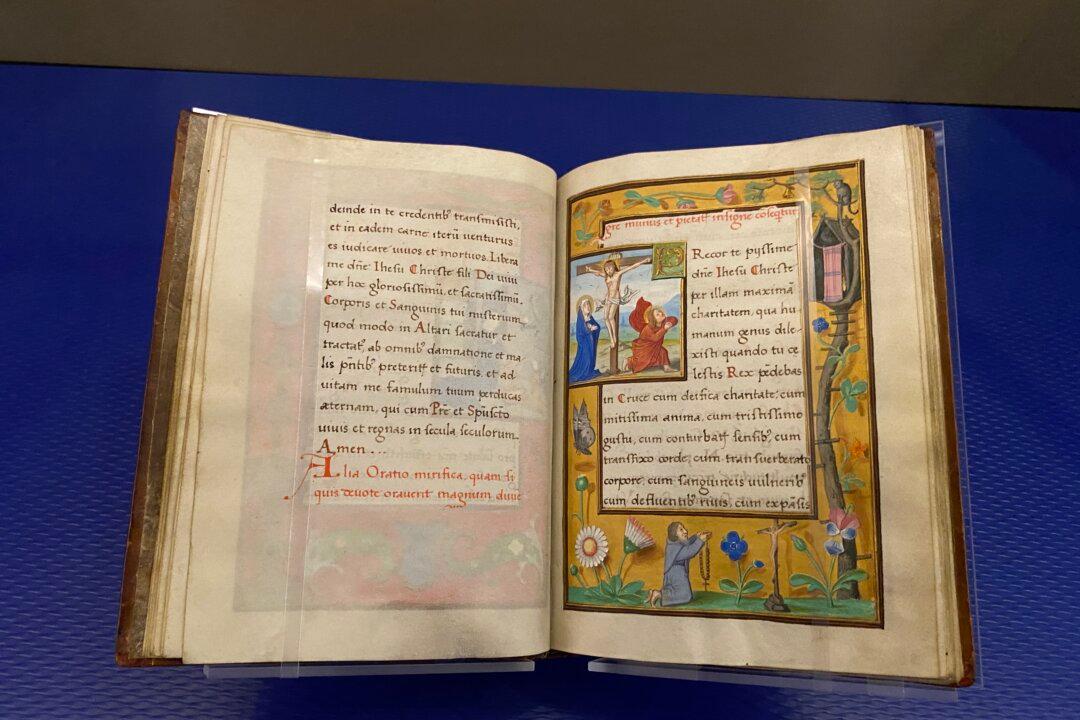 deinde in te credentib⁹ transmisisti,
et in eadem carne iterū venturus
es iudicare viuos et mortuos. Libera
me dn̄e Ihesu Christe fili Dei viui
per hoc gloriosissimū, et sacratissimū,
Corporis et Sanguinis tui misterium
quod modo in Altari sacratur et
tractat², ab omnib⁹ damnatione et ma⸗
lis pn̄tib⁹ preteritꝭ et futuris, et ad
vitam me famulum tuum perducas
æternam, qui cum Pr̄e et Spūscto
viuis et regnas in secula seculorum.
Amen . . .
Alia Oratio mirifica, quam si
quis deuote orauerit magnum diui⸗
gre munus et pietatꝭ insigne coseq̄tur
Precor te pijssime
dn̄e Ihesu Christe
per illam maximā
charitatem, qua hu⸗
manum genus dile⸗
xisti quando tu ce
lestis Rex pēdebas
in Cruce cum deifica charitate, cum
mitissima anima, cum tristissimo
gustu, cum conturbatꝭ sensib⁹, cum
transfixo corde, cum transuerberato
corpore, cum sanguineis vulnerib⁹
cum defluentib⁹ riuis, cum expāsis